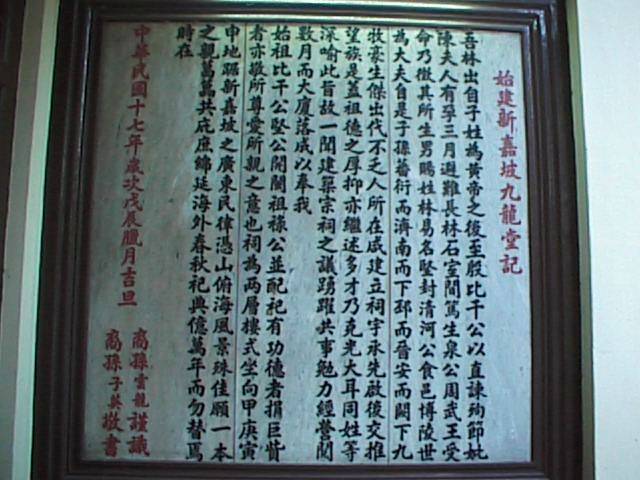 始建新嘉坡九龍堂記
吾林出自子姓為黃帝之後至殷比干公以直諫殉節妣
陳夫人有孕三月避難長林石室間篤生泉公周武王受
命乃徵其所生男賜姓林易名堅封清河公食邑博陵世
為大夫自是子孫蕃衍而濟南而下邳而晉安而闕下九
牧豪生傑出代不乏人所在咸建立祠宇承先啟後交推
望族是蓋祖德之厚抑亦繼述多才乃克光大耳同姓等
深喻此旨故一聞建築宗祠之議踴躍共事勉力經營閱
數月而大廈落成以奉我
始祖比干公堅公開閩祖祿公並配祀有功德者捐巨貲
者亦敬所尊愛所親之意也祠為兩層樓式坐向甲庚寅
申地踞新嘉坡之廣東民律憑山俯海風景殊佳願一本
之親萬萬共庇庶綿延海外春秋祀典億萬年而勿替焉
時在
中華民國十七年歲次戊辰臘月吉旦
裔孫雲龍謹識
裔孫子英敬書